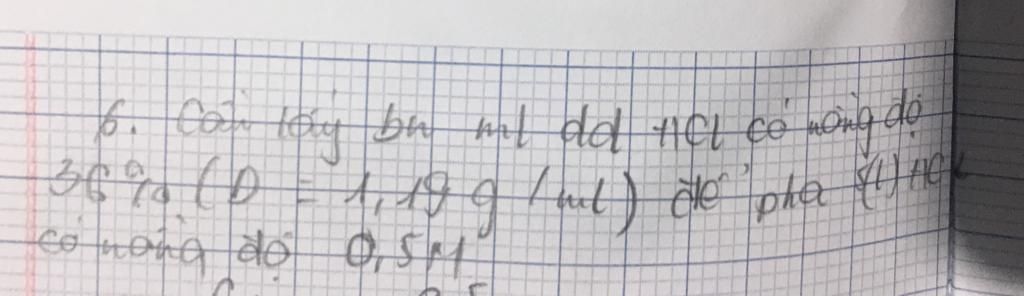 6. Cần lấy bn ml dd HCl có nồng độ
36% (D = 1,19 g/ml) để pha (l) HCl
có nồng độ 0,5M